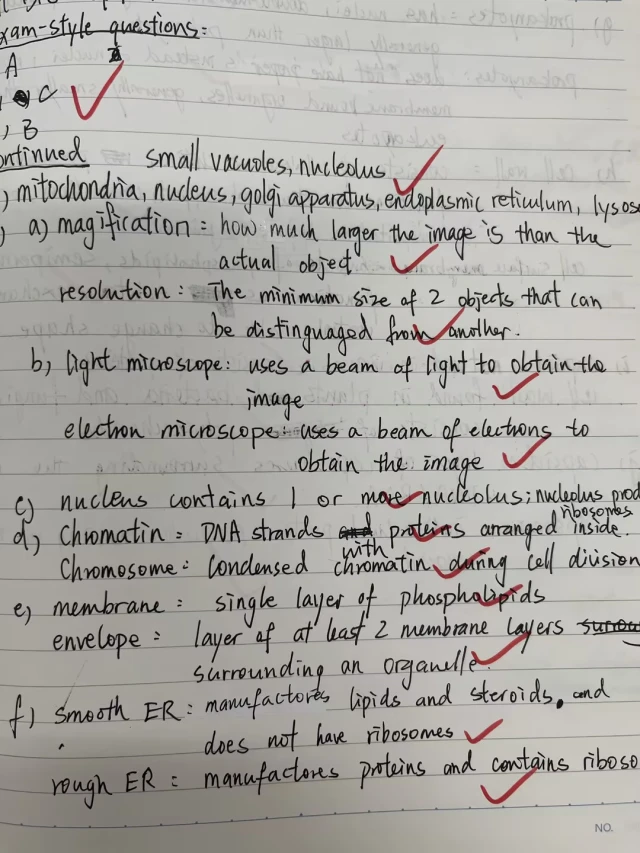 xam-style questions:
A
C
, B
ontinued small vacuoles, nucleolus
) mitochondria, nucleus, golgi apparatus, endoplasmic reticulum, lysoso
) a) magification = how much larger the image is than the
actual object
resolution: The minimum size of 2 objects that can
be distinguaged from another.
b) light microscope: uses a beam of light to obtain the
image
electron microscope: uses a beam of electrons to
obtain the image
c) nucleus contains 1 or more nucleolus; nucleolus prod
ribosomes
d) Chromatin = DNA strands with proteins arranged inside.
Chromosome: Condensed chromatin during cell division
e) membrane = single layer of phospholipids
envelope = layer of at least 2 membrane layers
surrounding an organelle.
f) smooth ER = manufactores lipids and steroids, and
does not have ribosomes
rough ER = manufactores proteins and contains riboso
NO.